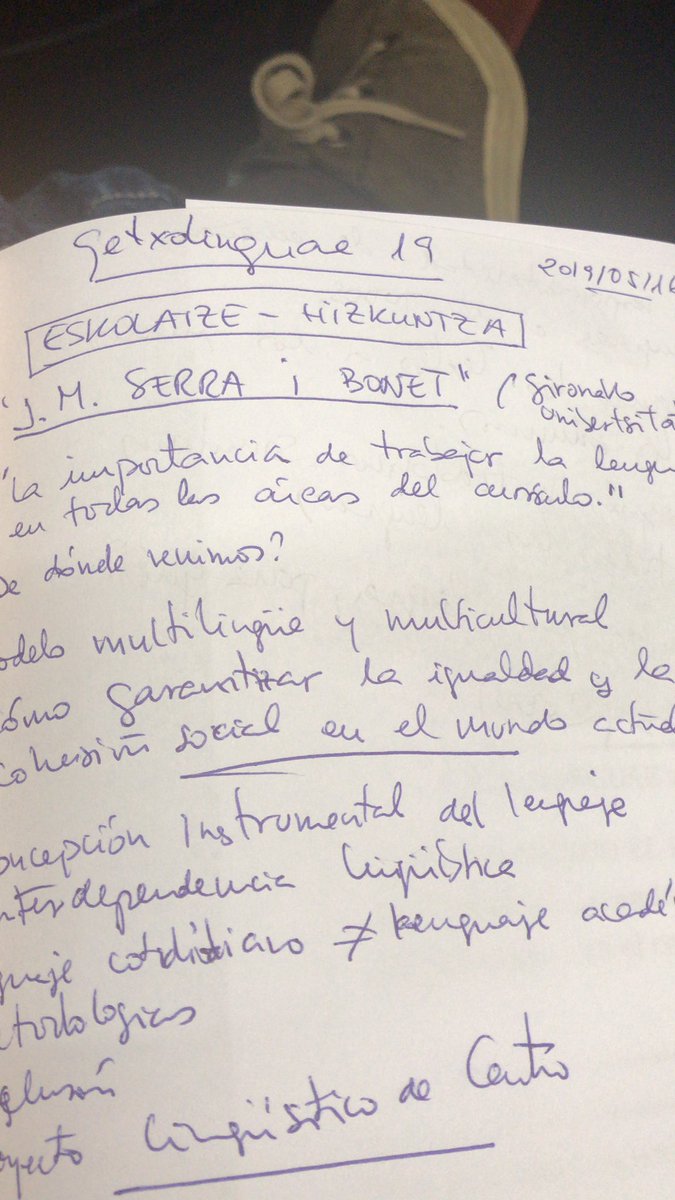 Getxolinguae 19
2019/05/16
ESKOLATZE - HIZKUNTZA
"J. M. SERRA i BONET" (Gironako
Unibertsita
"La importancia de trabajar la lengu
en todas las áreas del currículo."
De dónde venimos?
odelo multilingüe y multicultural
ómo garantizar la igualdad y la
cohesión social en el mundo actua
oncepción instrumental del lenguaje
nterdependencia lingüística
guaje cotidiano ≠ lenguaje acadé
todológicas
clusión
oyecto Lingüístico de Centro